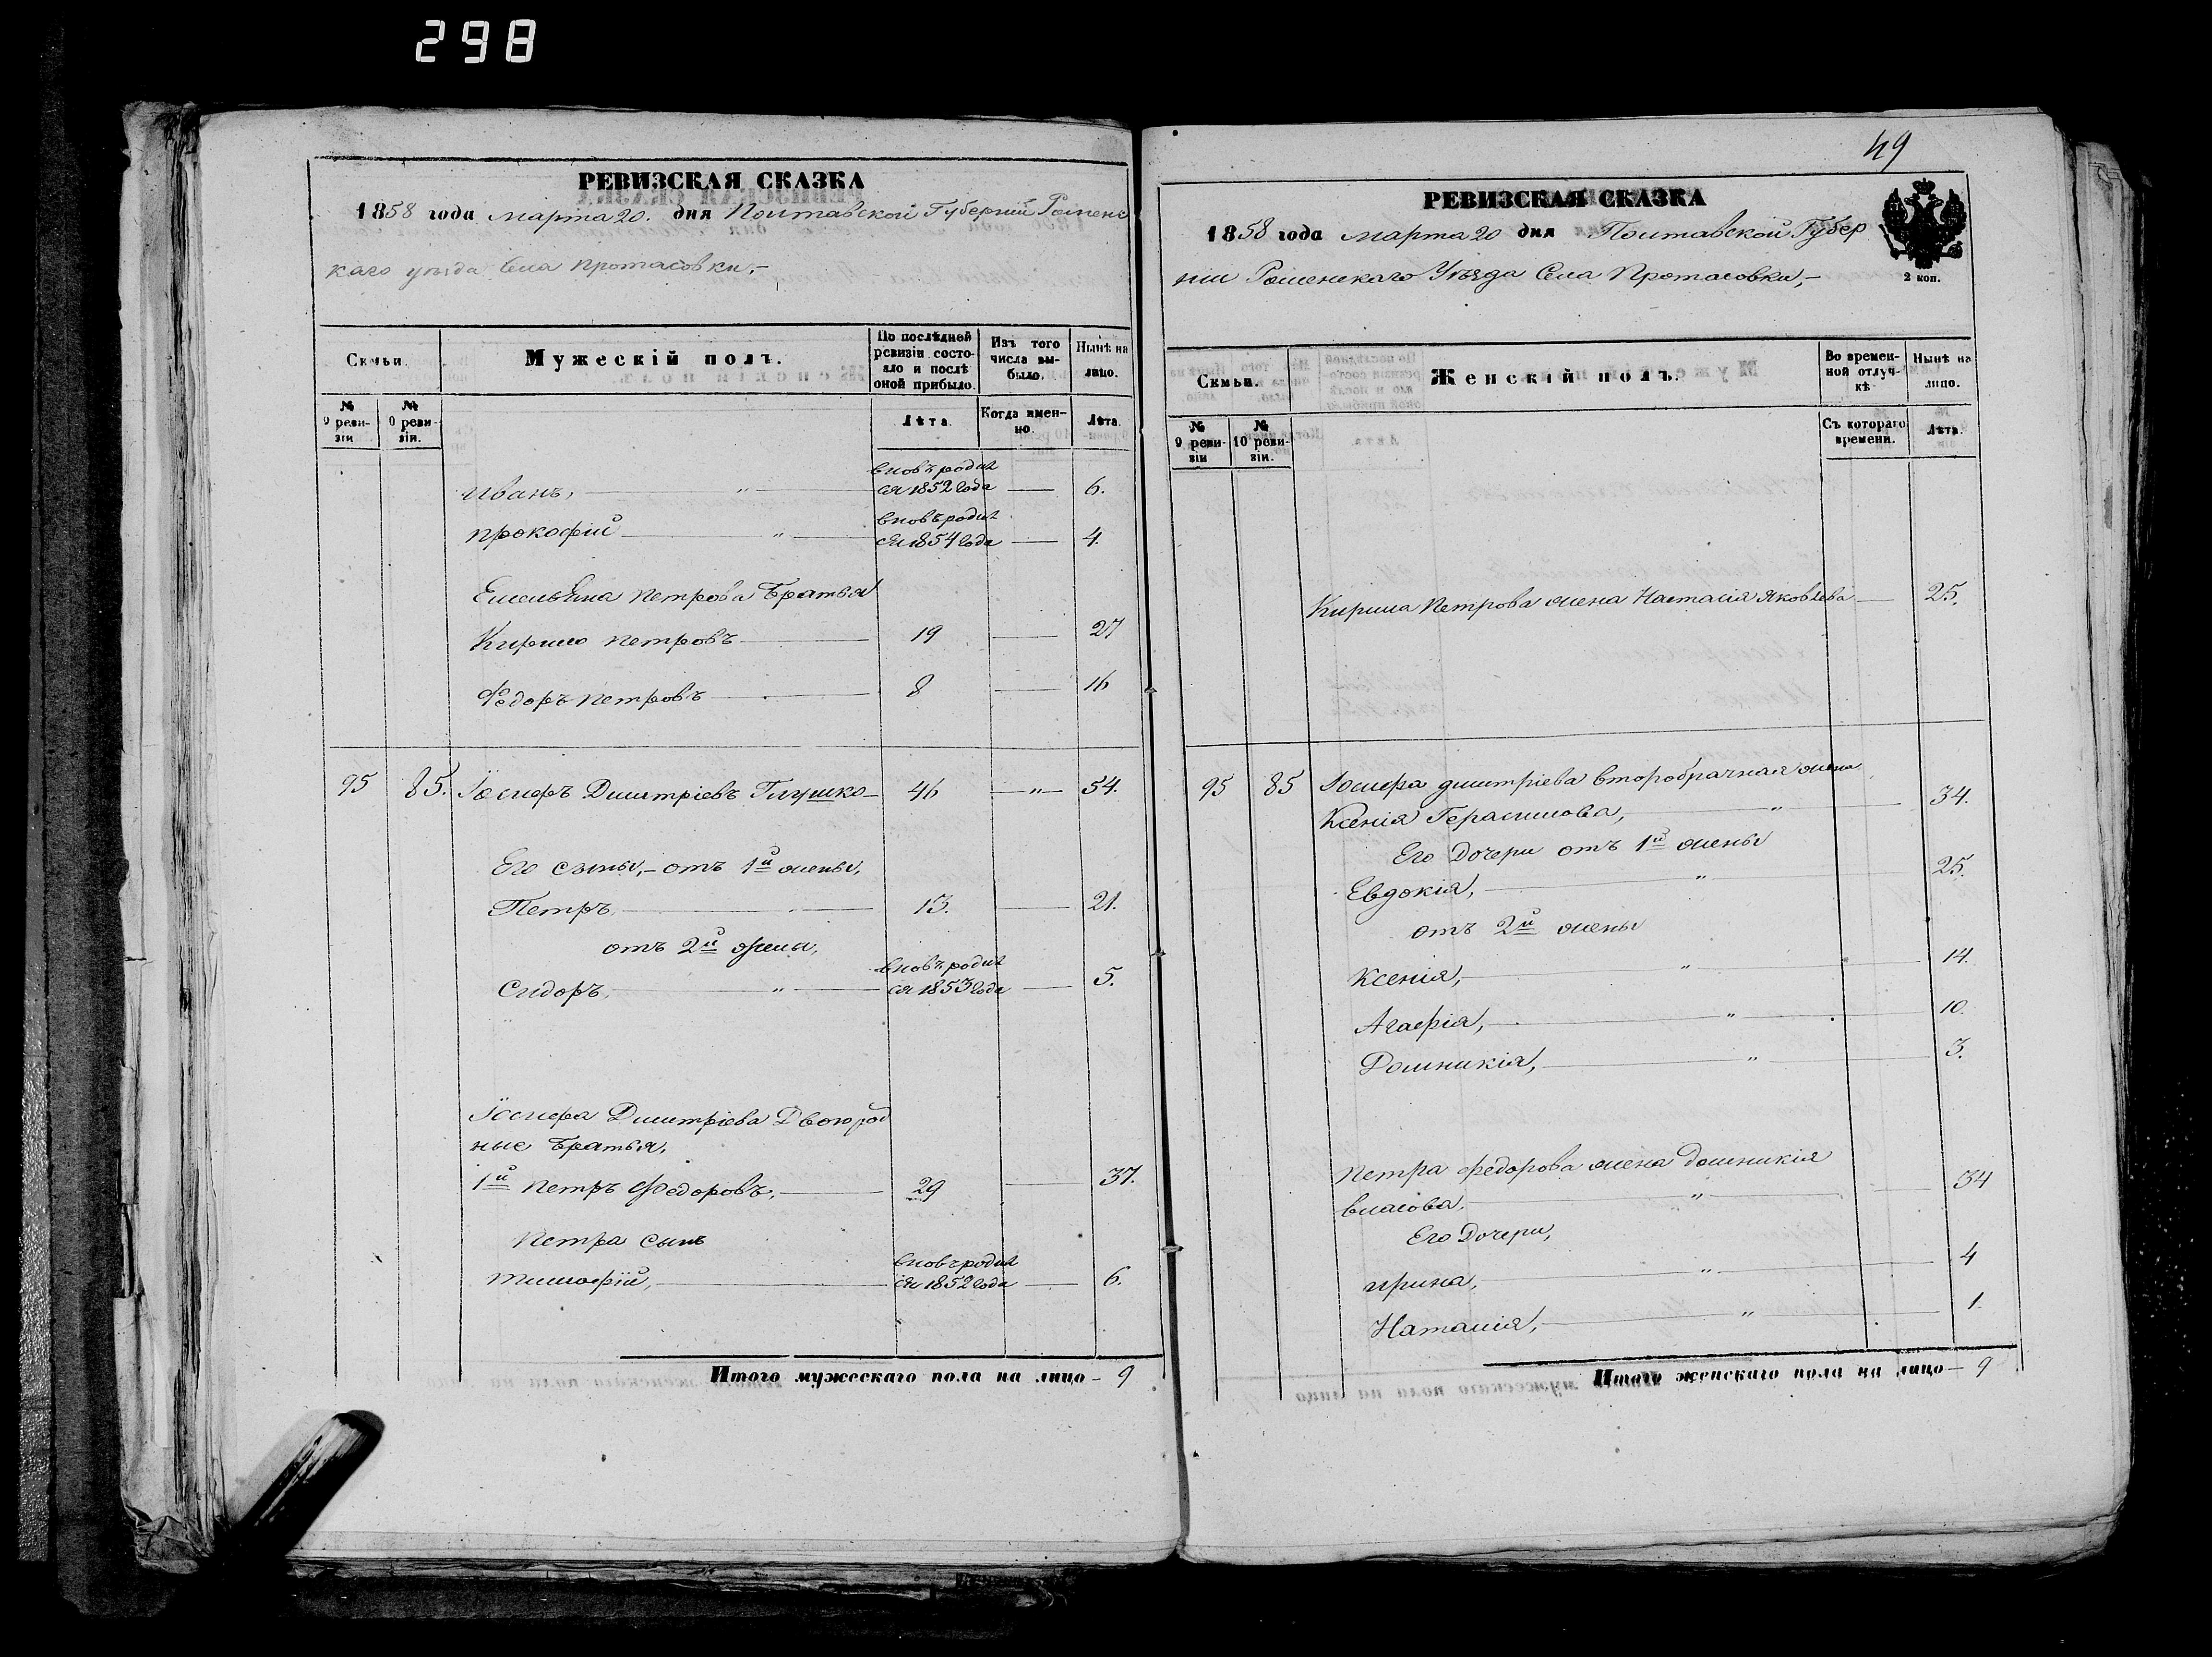 298
РЕВИЗСКАЯ СКАЗКА
1858 года марта 20. дня Полтавской Губерніи Роменс
каго уѣзда Села Протасовки,-
Семьи.
Мужескій полъ.
По послѣдней ревизіи состояло и послѣ оной прибыло.
Изъ того числа выбыло.
Нынѣ на лицо.
№ 9 ревизіи
№ 0 ревизіи.
Лѣта.
Когда именно.
Лѣта.
Иванъ, — " — вновь родил
ся 1852 года — 6.
Прокофій — " — вновь родил
ся 1854 года — 4.
Емельяна Петрова Братья
Кирило Петровъ — 19 — 27
Федоръ Петровъ — 8 — 16
95 85. Іосифъ Дмитріевъ Глушко — 46 — " — 54.
Его сыны,- отъ 1й жены,
Петръ — 13. — 21.
отъ 2й жены,
Сидоръ, — " — вновь родил
ся 1853 года — 5.
Іосифа Дмитріева Двоюрод
ные Братья,
1й Петръ Федоровъ, — 29 — 37.
Петра сынъ
Тимофій, — вновь родил
ся 1852 года — 6.
Итого мужескаго пола на лицо - 9
49
РЕВИЗСКАЯ СКАЗКА
1858 года марта 20 дня Полтавской Губер
ніи Роменскаго Уѣзда Села Протасовки,-
2 коп.
Семьи.
Женскій полъ.
Во временной отлучкѣ
Нынѣ на лицо.
№ 9 ревизіи
№ 10 ревизіи.
Съ котораго времени.
Лѣта.
Кирила Петрова жена Настасія Яковлева — 25.
95 85 Іосифа Дмитріева второбрачная жена
Ксенія Герасимова, — " — 34.
Его Дочери отъ 1й жены
Евдокія, — " — 25.
отъ 2й жены
Ксенія, — " — 14.
Агафія, — " — 10.
Домникія, — " — 3.
Петра Федорова жена Домникія
Власова, — " — 34
Его Дочери,
Ирина, — " — 4
Наталія, — " — 1.
Итого женскаго пола на лицо — 9